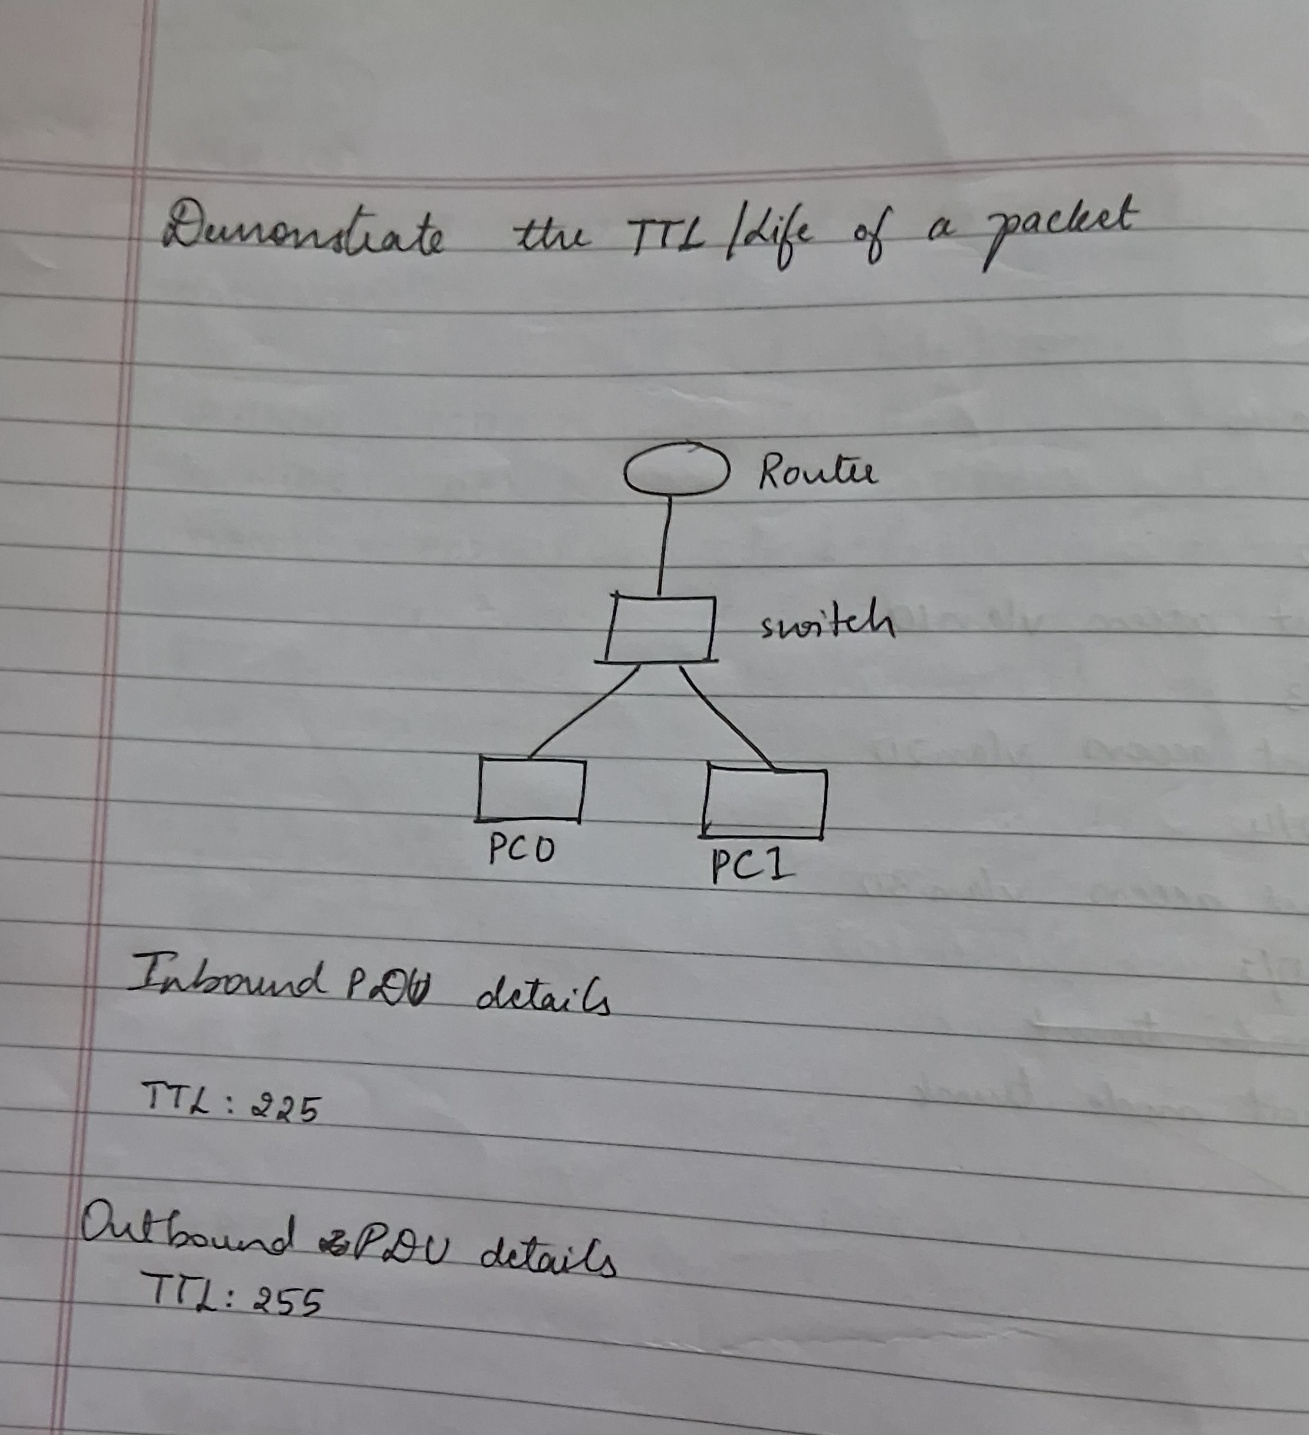 Demonstrate the TTL/Life of a packet
Router
switch
PC0
PC1
Inbound PDU details
TTL: 225
Outbound PDU details
TTL: 255